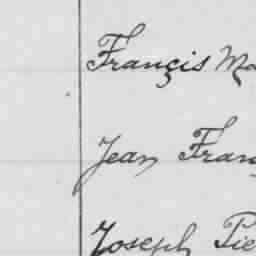 Françis Ma
Jean Fran
Joseph Pie